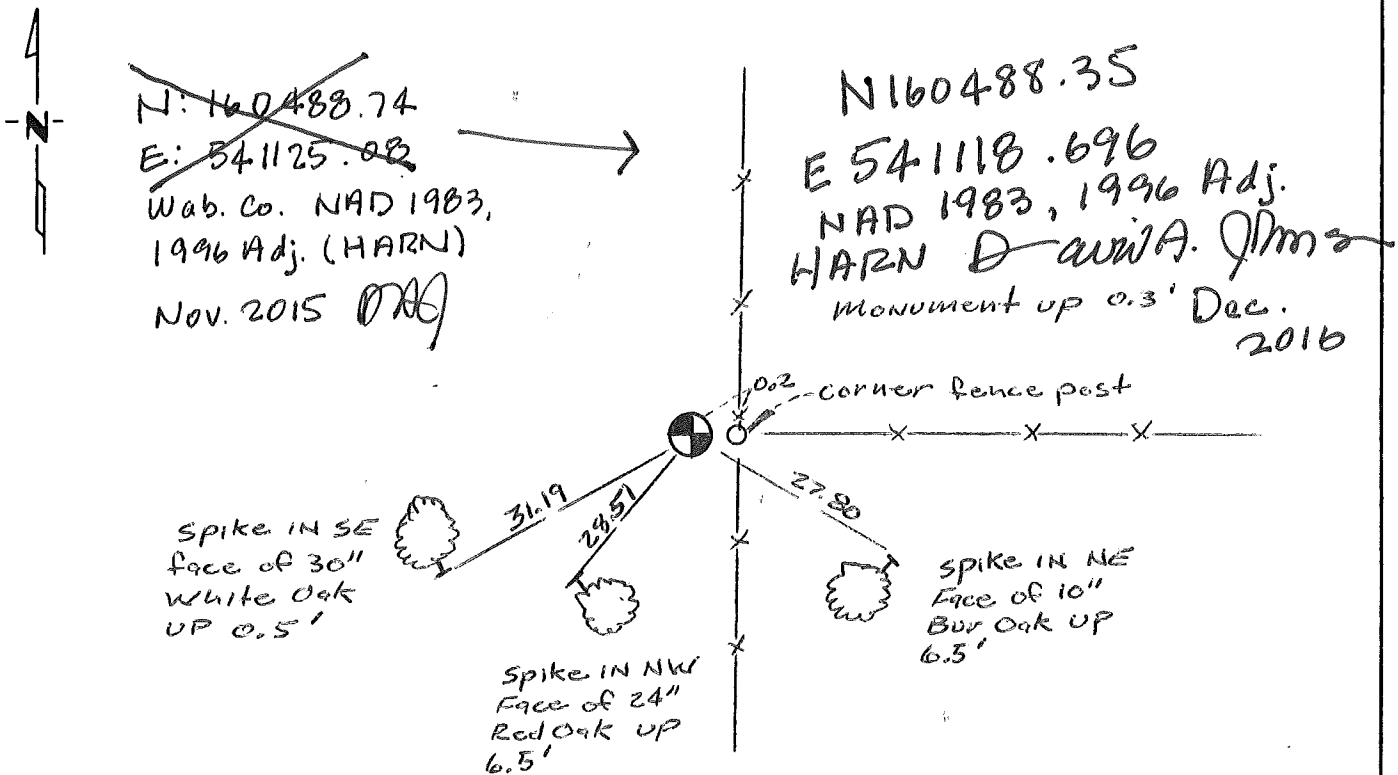 N
N: 160488.74
E: 541125.08
Wab. Co. NAD 1983,
1996 Adj. (HARN)
Nov. 2015
N160488.35
E 541118.696
NAD 1983, 1996 Adj.
HARN David A.
Monument up 0.3' Dec.
2016
0.2
corner fence post
31.19
28.51
27.80
spike IN SE
face of 30"
White Oak
UP 0.5'
spike IN NW
Face of 24"
Red Oak up
6.5'
spike IN NE
Face of 10"
Bur Oak up
6.5'